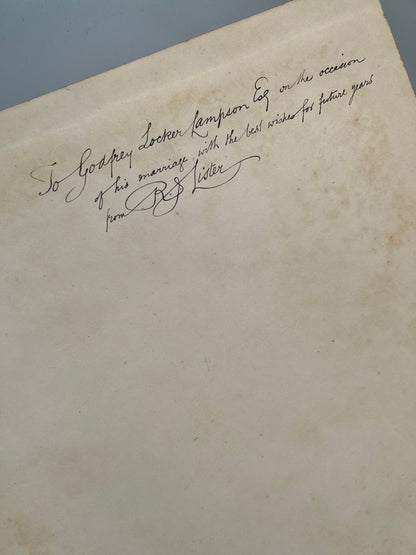 To Godfrey Locker Lampson Esq on the occasion
of his marriage with the best wishes for future years
from R. S Lister